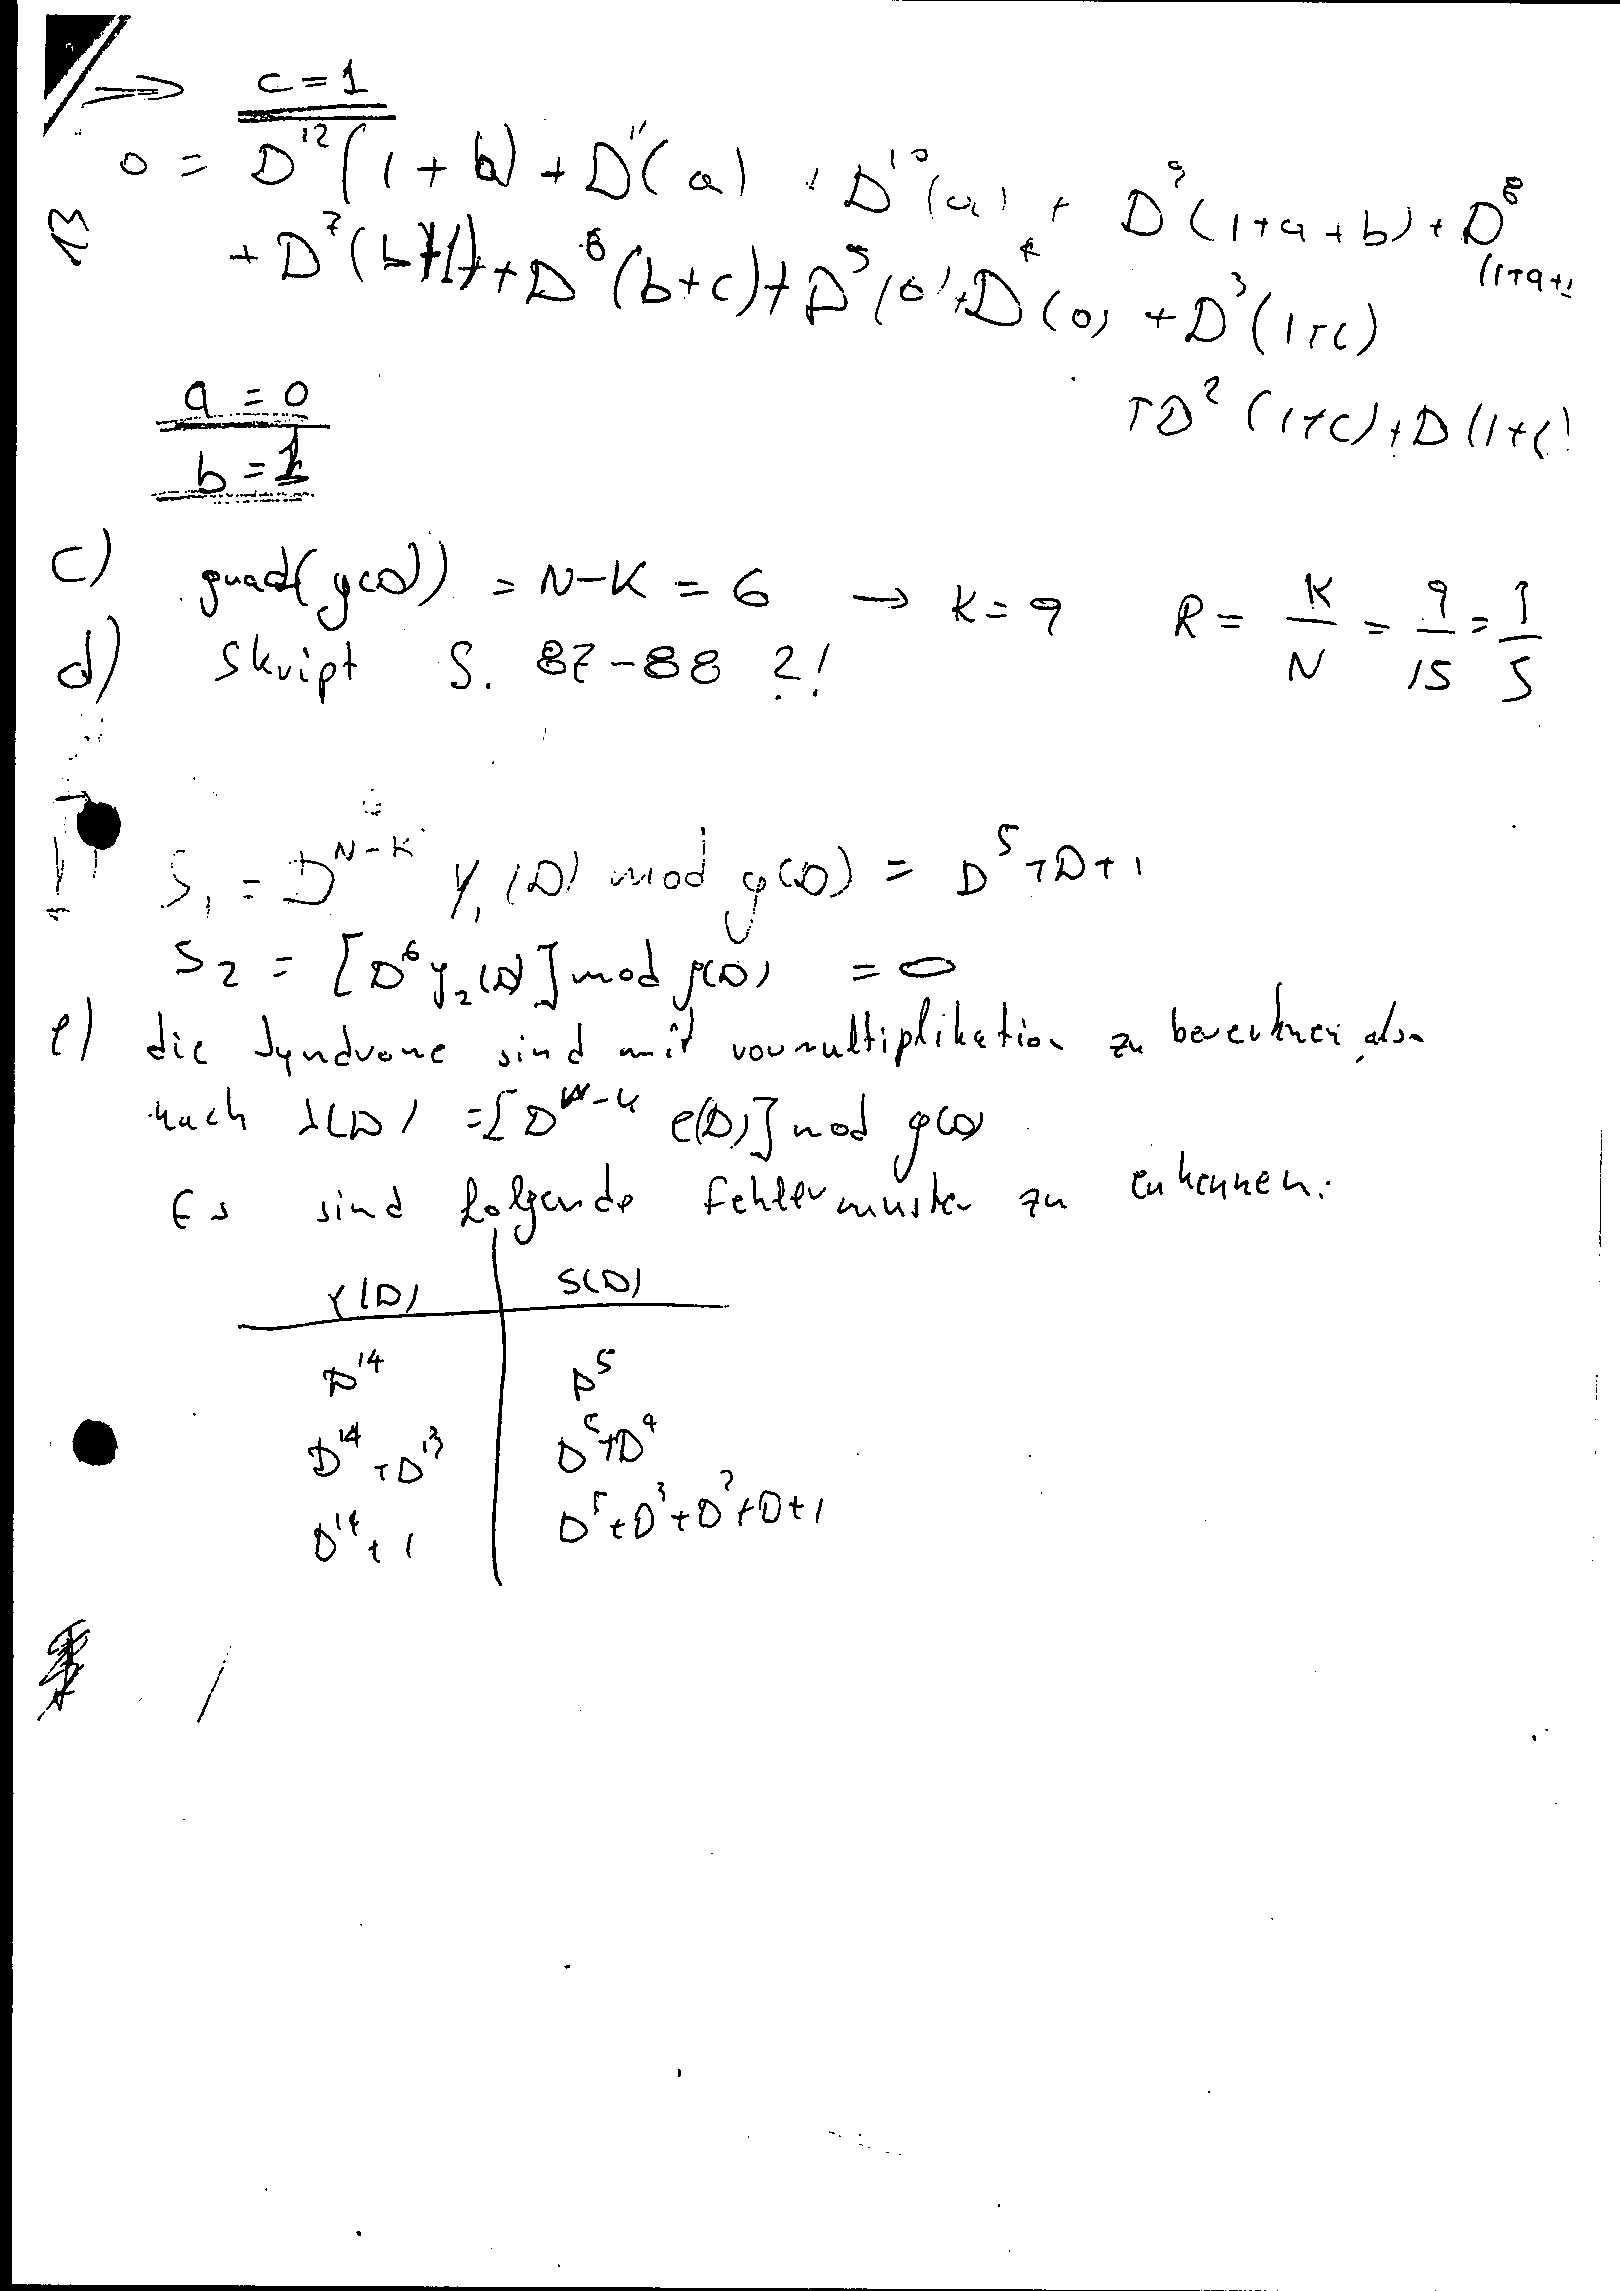 c = 1
0 = D^12 (1 + b) + D^11 (a) + D^10 (a) + D^9 (1+a+b) + D^8 (1+a+
+ D^7 ( + D^6 (b+c) + D^5 (0) + D^4 (0) + D^3 (1+c)
+ D^2 (1+c) + D (1+c)
a = 0
b = 1
c) grad(g(D)) = N-K = 6 → K = 9 R = K/N = 9/15 = 3/5
d) Skript S. 87-88 ?!
S_1 = D^N-K Y_1(D) mod g(D) = D^5+D+1
S_2 = [D^6 y_2(D)] mod g(D) = 0
e) die Syndrome sind mit vormultiplikation zu berechnen, also
nach s(D) = [D^N-K e(D)] mod g(D)
Es sind folgende Fehlermuster zu erkennen:
Y(D) S(D)
D^14 D^5
D^14+D^13 D^5+D^4
D^14+1 D^5+D^3+D^2+D+1